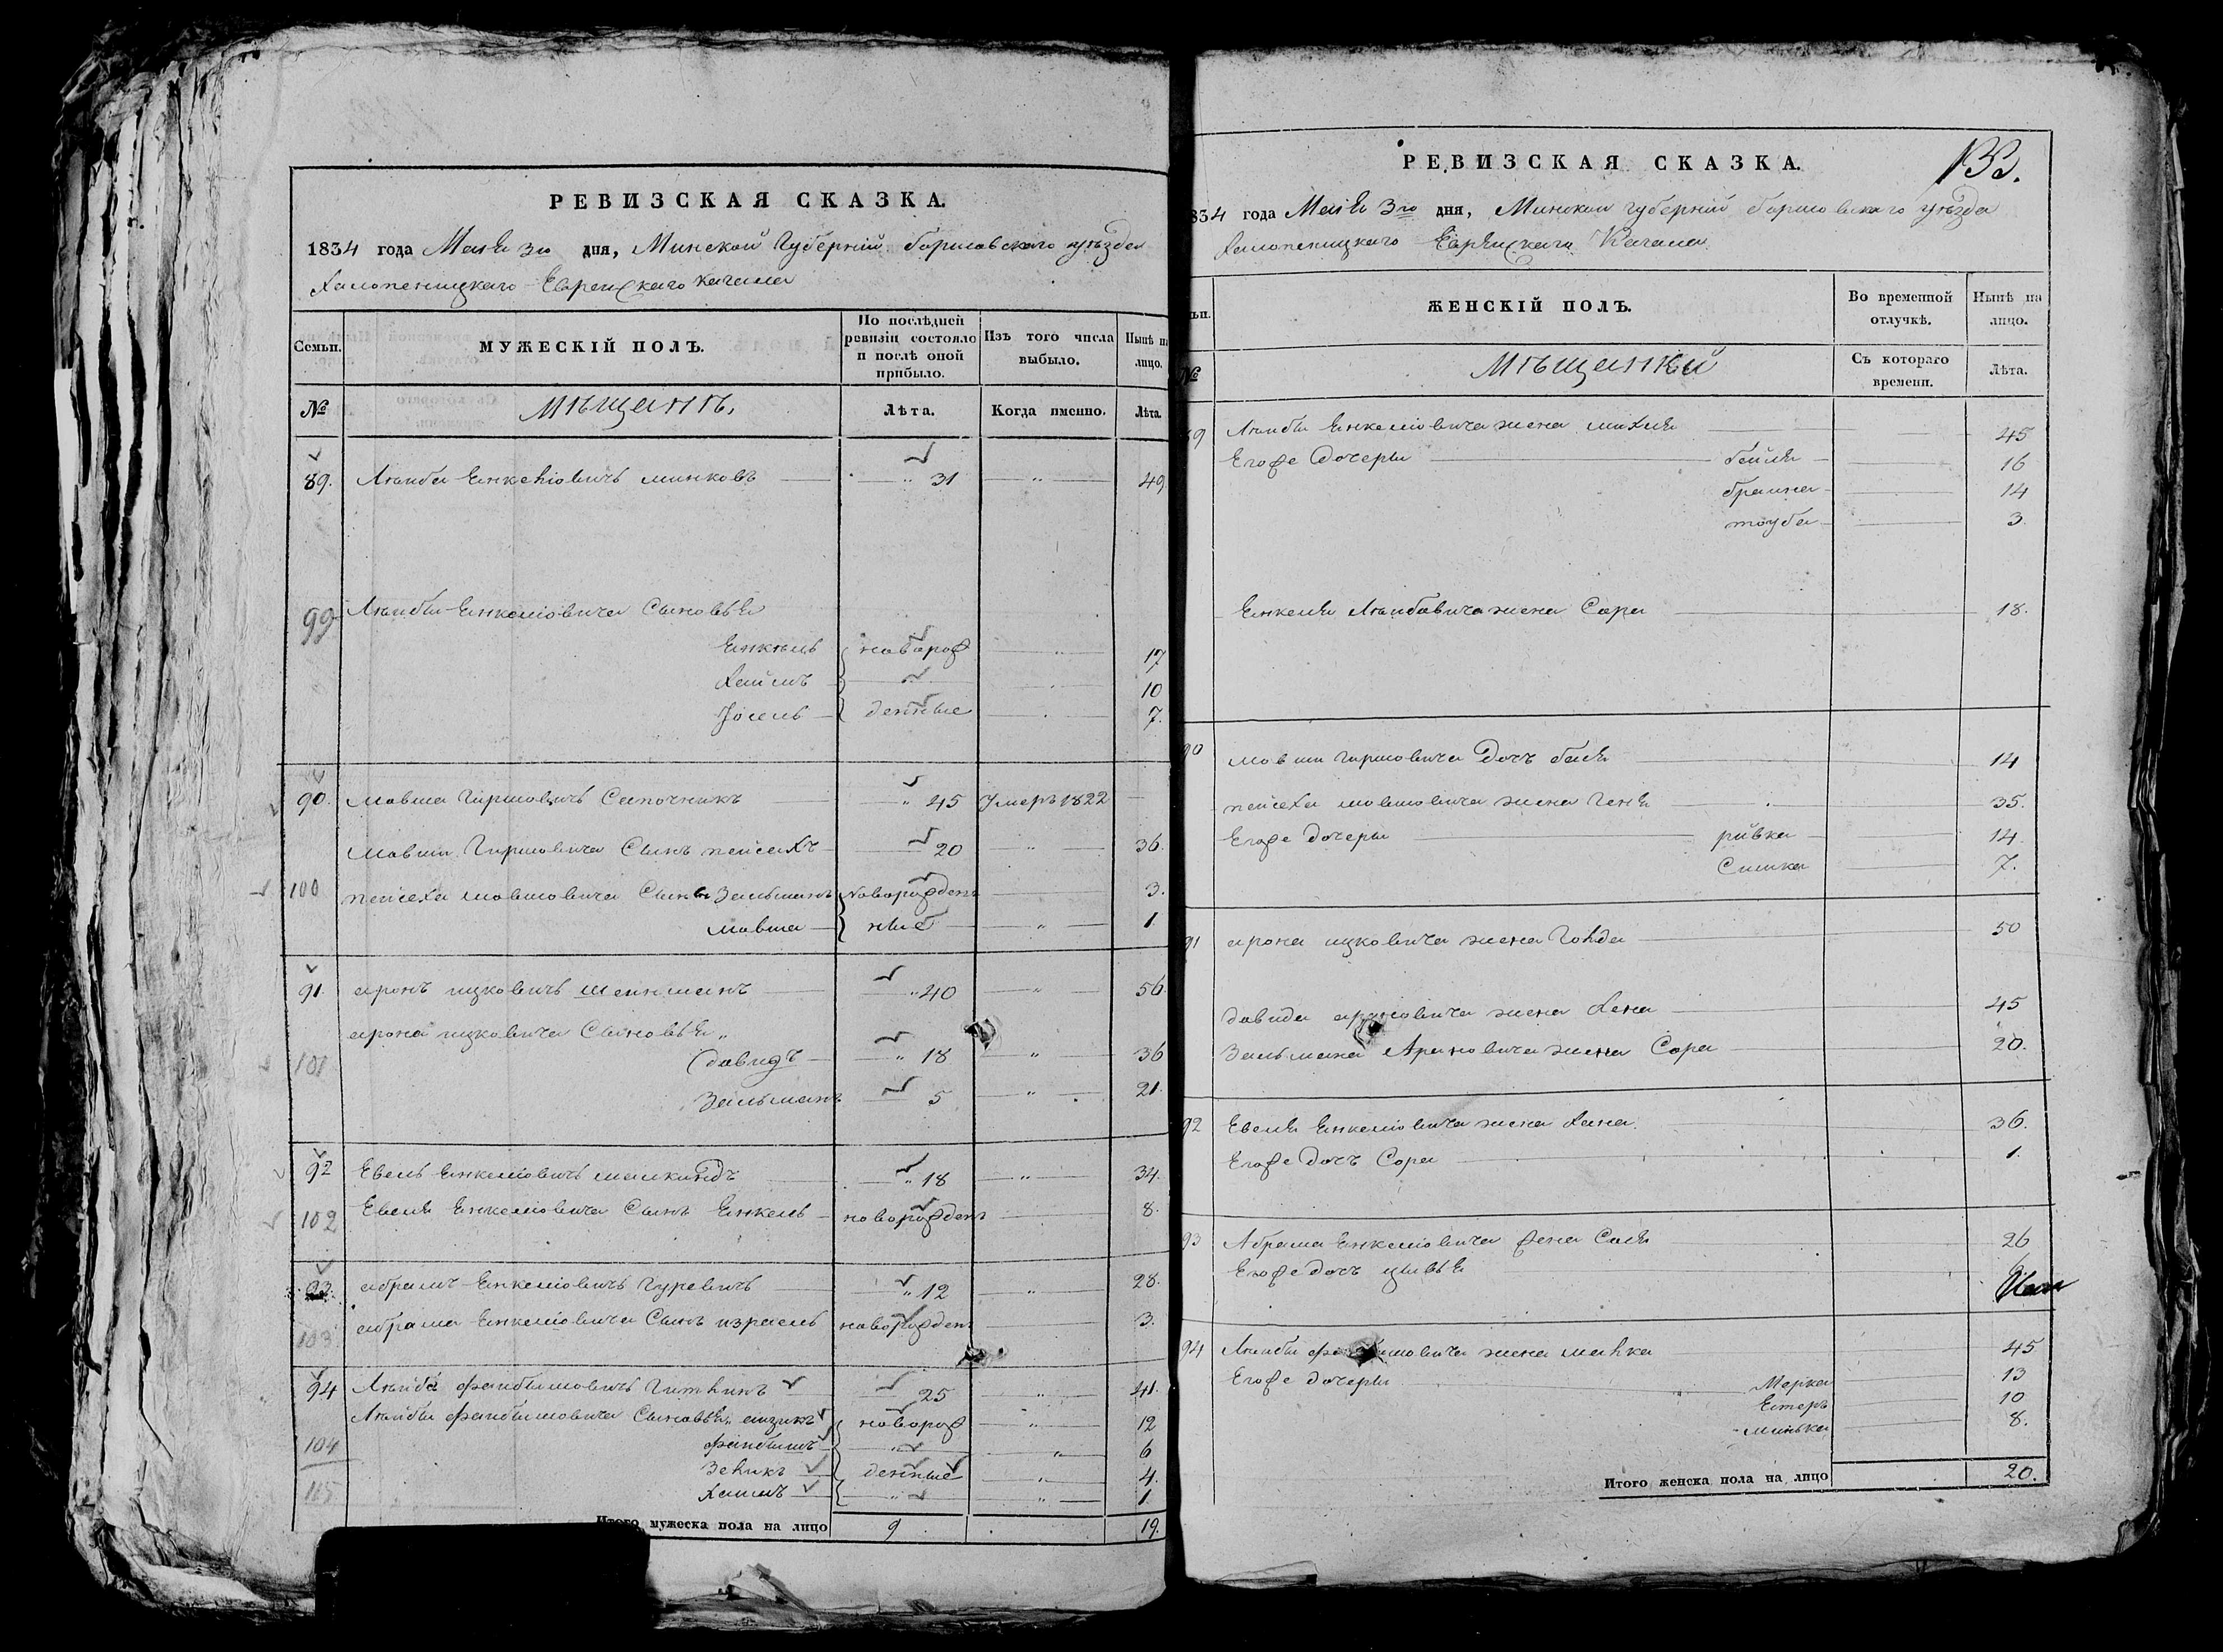 РЕВИЗСКАЯ СКАЗКА.
1834 года Маія 3го дня, Минской Губерніи борисовскаго уѣзда
Халопеницкаго Еврейскаго кагала
Семьи. МУЖЕСКІЙ ПОЛЪ. По послѣдней ревизіи состояло и послѣ оной прибыло. Изъ того числа выбыло. Нынѣ на лицо.
№ Мѣщанѣ, Лѣта. Когда именно. Лѣта.
89. Лейба Енкеліовичъ минковъ 31 49
99 Лейбы Енкеліовича Сыновья
Енкель новорож 17
Хаймъ 10
Іосель денные 7.
90. мовша Гиршовичъ Сапочникъ 45 Умеръ 1822
мовши Гиршовича Сынъ пейсахъ 20 36.
100 пейсаха мовшовича Сынъ Зальманъ Новорожден 3.
мовша ные 1
91. аронъ ицковичъ шейнманъ 40 56
арона ицковича Сыновья
101 давидъ 18 36
Зальманъ 5 21.
92 Евель Енкеліовичъ малкиндъ 18 34.
102 Евеля Енкеліовича Сынъ Енкель новорожденъ 8.
93. абрамъ Енкеліовичъ Гуревичъ 12 28.
103 абрама Енкеліовича Сынъ израель новорожден 3.
94 Лейба файбишовичъ Гиткинъ 25 41.
Лейбы файбишовича Сыновья айзикъ новорож 12
104 файбишъ 6
Зеликъ денные 4.
105 Хаимъ 1.
Итого мужеска пола на лицо 9 19.
РЕВИЗСКАЯ СКАЗКА. 133.
834 года Маія 3го дня, Минской губерніи борисовскаго уѣзда
Халопеницкаго Еврейскаго Кагала
ЖЕНСКІЙ ПОЛЪ. Во временной отлучкѣ. Нынѣ на лицо.
№ Мѣщанки Съ котораго времени. Лѣта.
89 Лейбы Енкеліовича жена михля 45
Егоже дочеры бейля 16
брайна 14
тоуба 3
Енкеля Лейбовича жена Сора 18.
90 мовши гиршовича дочъ бася 14
пейсаха мовшовича жена геня 35.
Егоже дочеры ривка 14.
Симка 7.
91 арона ицковича жена Голда 50
давида ароновича жена Хена 45
Зальмана Ароновича жена Сора 20.
92 Евеля Енкеліовича жена Хана 36.
Егоже дочъ Сора 1.
93 Абрама Енкеліовича жена Сося 26
Егоже дочъ цывья
94 Лейбы фай шовича жена малка 45
Егоже дочеры Мерка 13
Естеръ 10
минька 8.
Итого женска пола на лицо 20.